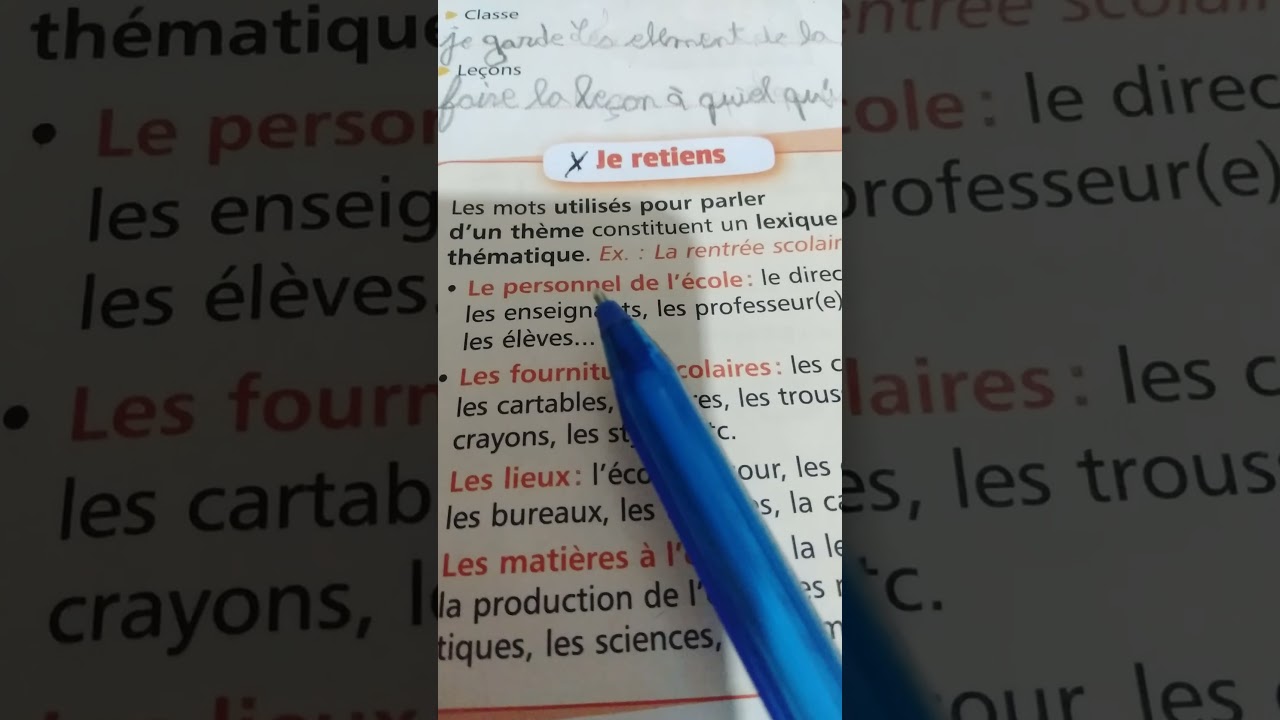 Classe
je garde Les ellement de la
Leçons
faire la leçon à quiel qu'
Je retiens
Les mots utilisés pour parler
d'un thème constituent un lexique
thématique. Ex. : La rentrée scolair
• Le personnel de l'école : le direc
les enseignants, les professeur(e)
les élèves...
• Les fournitu colaires : les c
les cartables, es, les trous
crayons, les st tc.
Les lieux : l'éco our, les
les bureaux, les s, la ca
Les matières à l' la le
la production de l' es
tiques, les sciences,